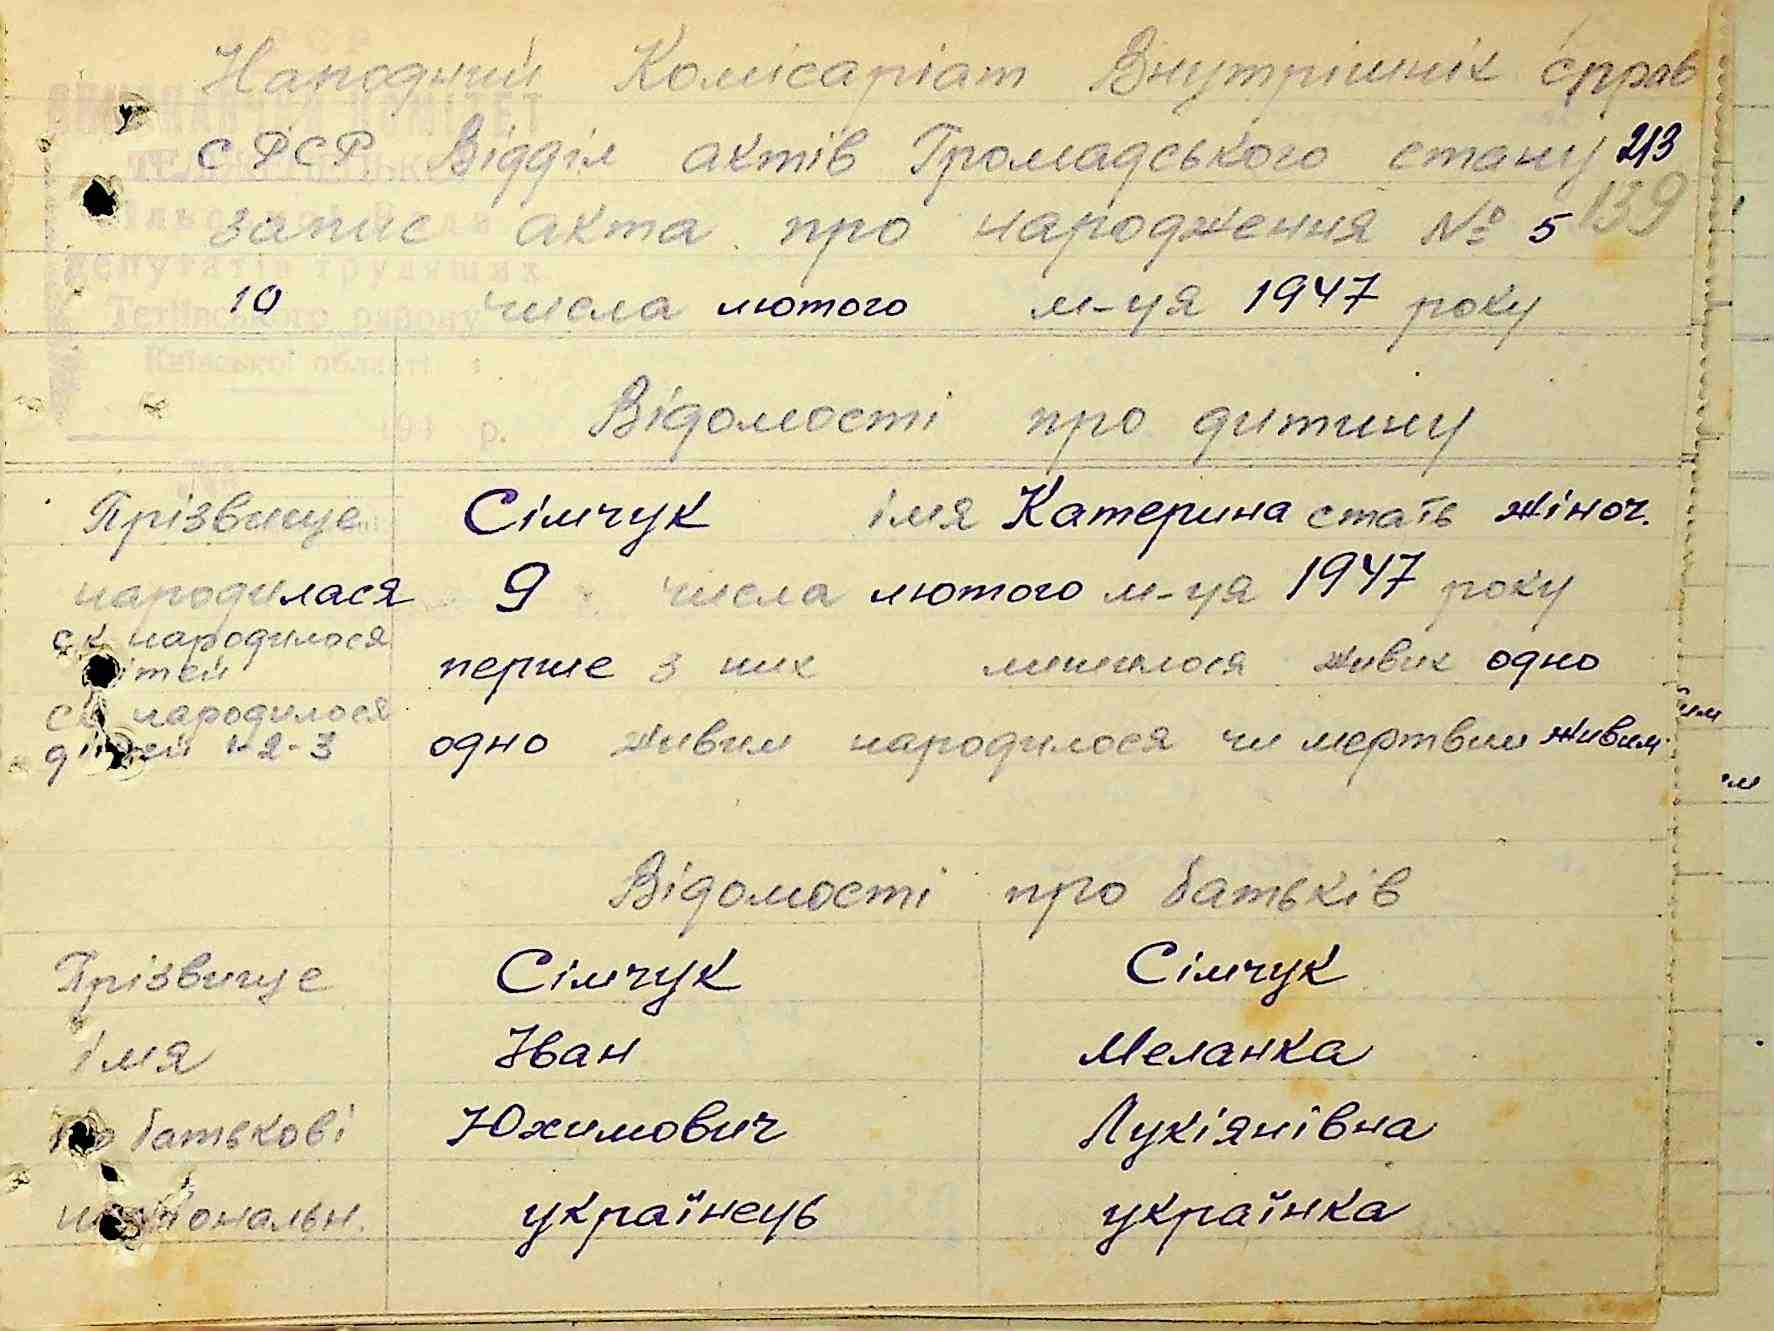 Народний Комісаріат Внутрішніх справ
СРСР Відділ актів Громадського стану 213
запис акта про народження № 5 139
10 числа лютого м-ця 1947 року
Відомості про дитину
Прізвище Сімчук імя Катерина стать жіноч.
народилася 9 числа лютого м-ця 1947 року
ск народилося
дітей перше з них лишилося живих одно
ск народилося
дітей 1-2-3 одно живим народилося чи мертвим живим.
Відомості про батьків
Прізвище Сімчук Сімчук
імя Іван Меланка
По батькові Юхимович Лукіянівна
національн. українець українка